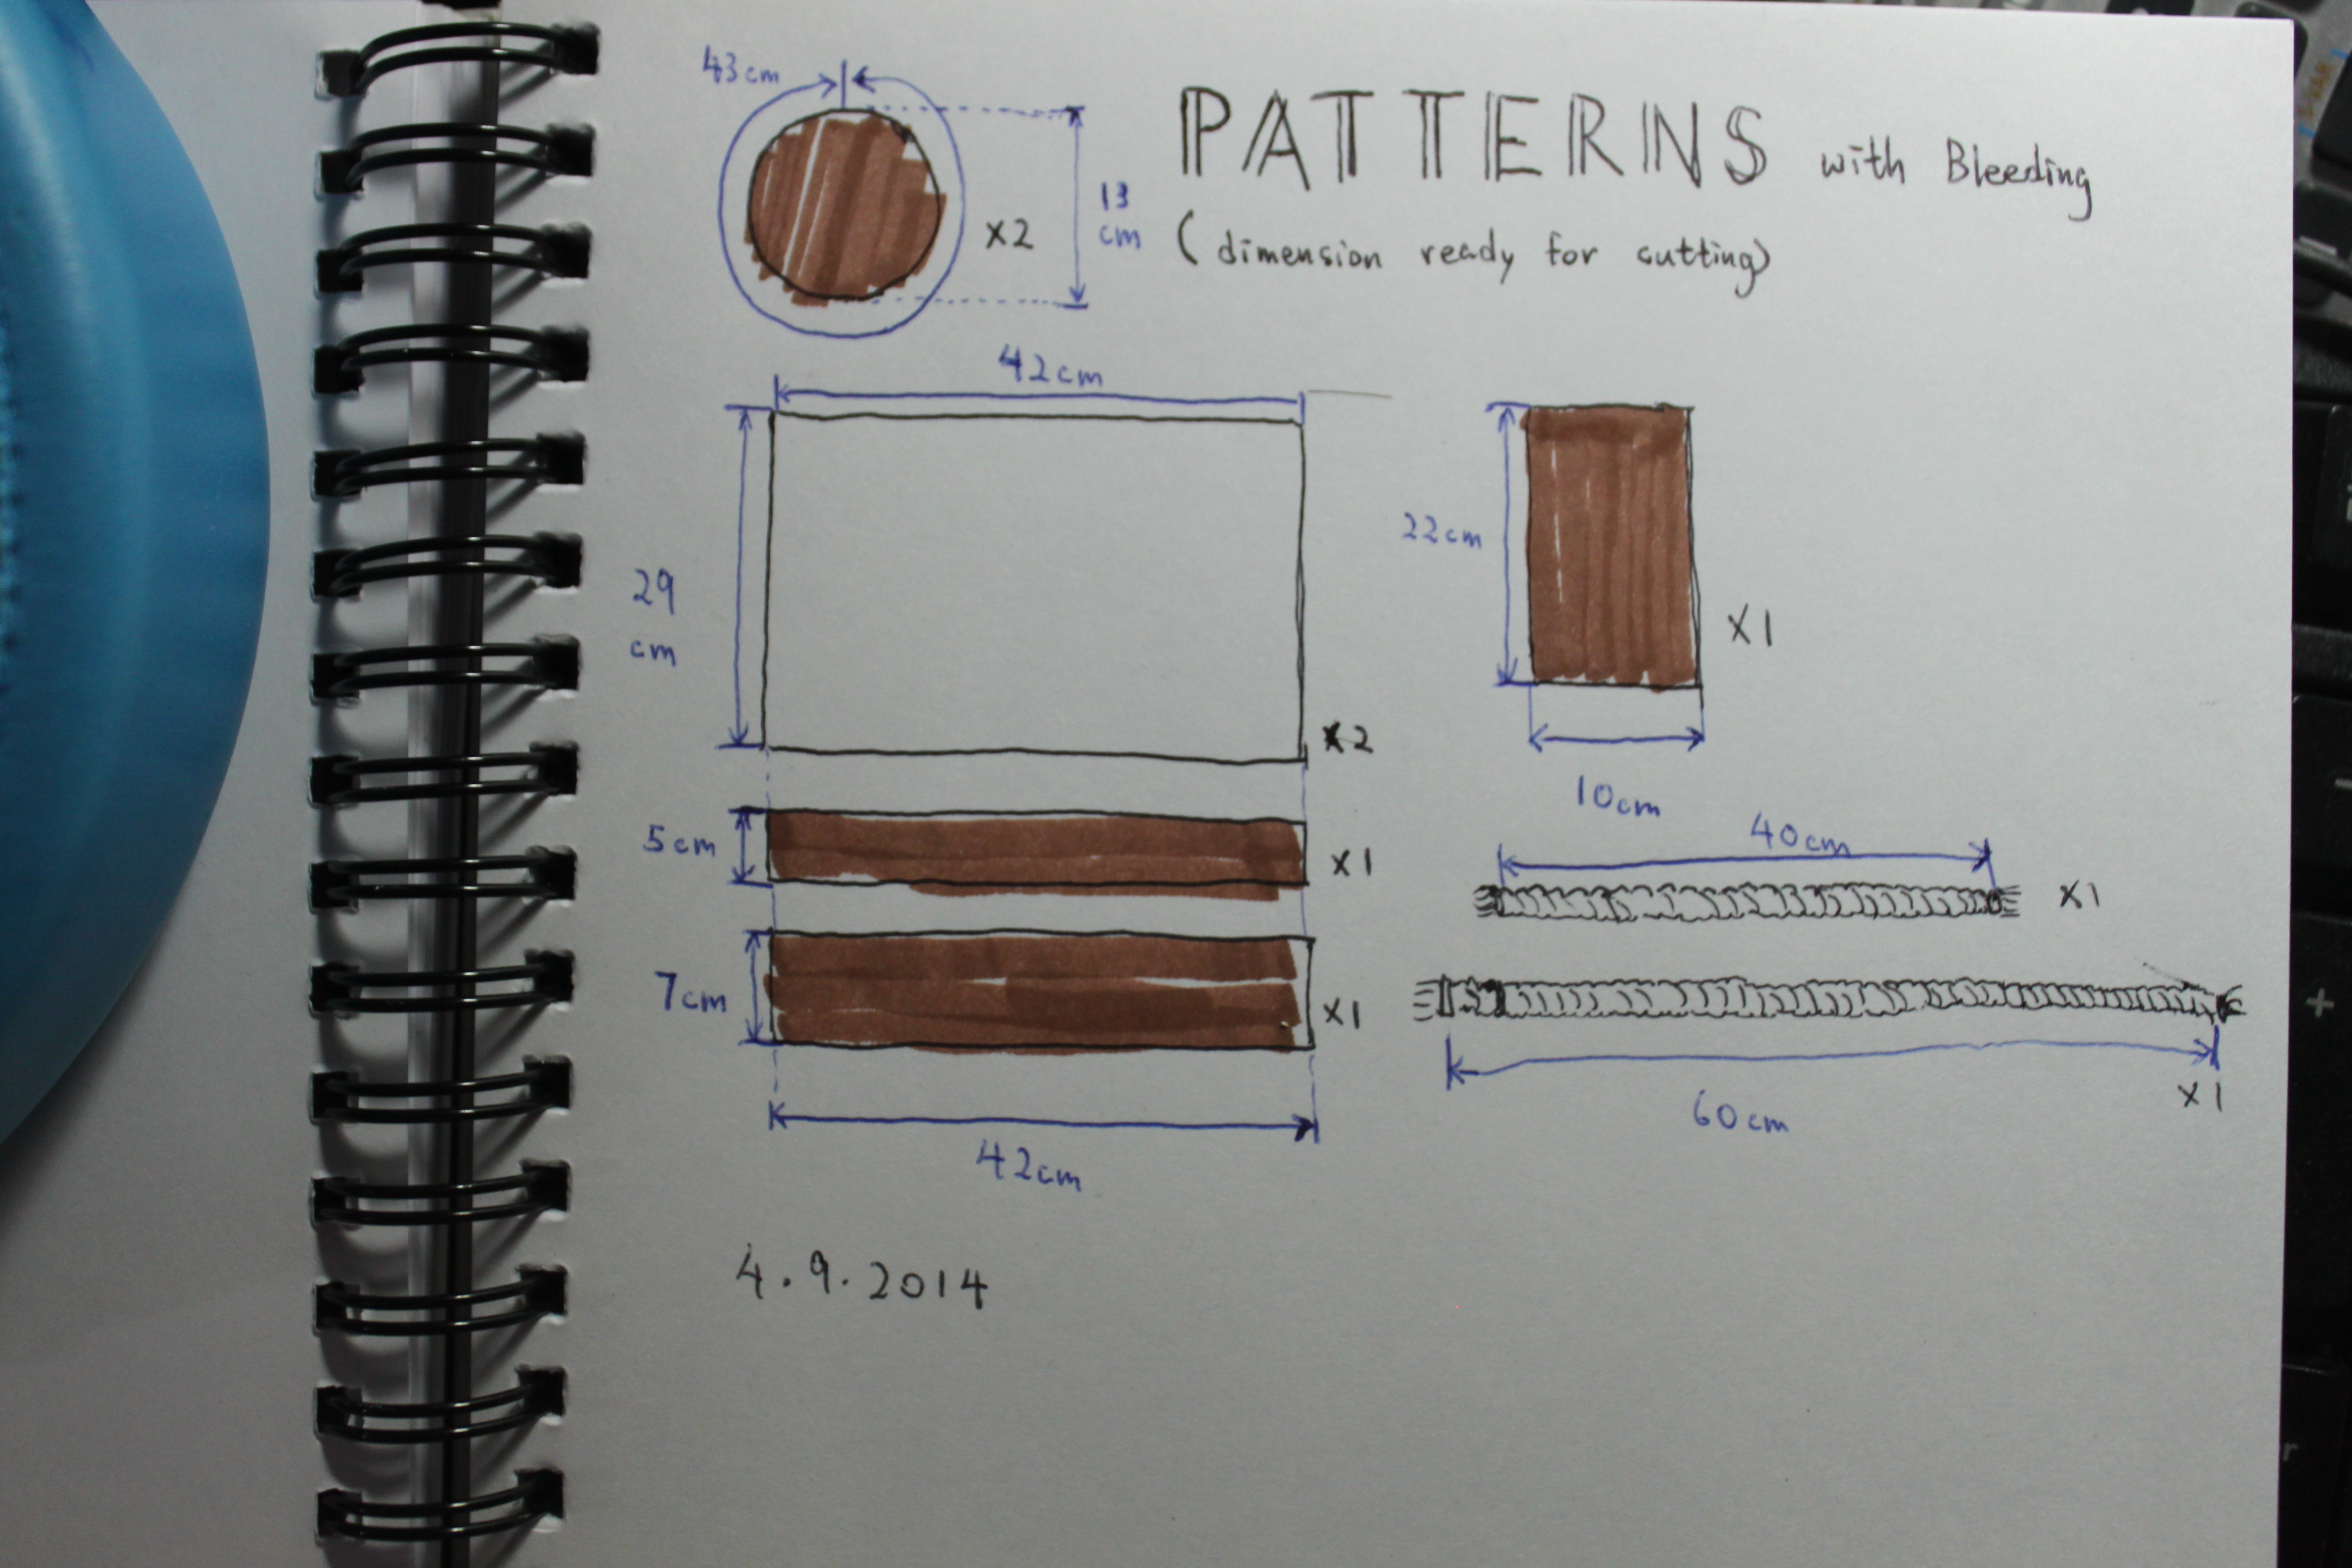 43cm
PATTERNS with Bleeding
(dimension ready for cutting)
x2
13
cm
42cm
29
cm
x2
22cm
x1
10cm
5cm
x1
40cm
x1
7cm
x1
60cm
x1
42cm
4.9.2014